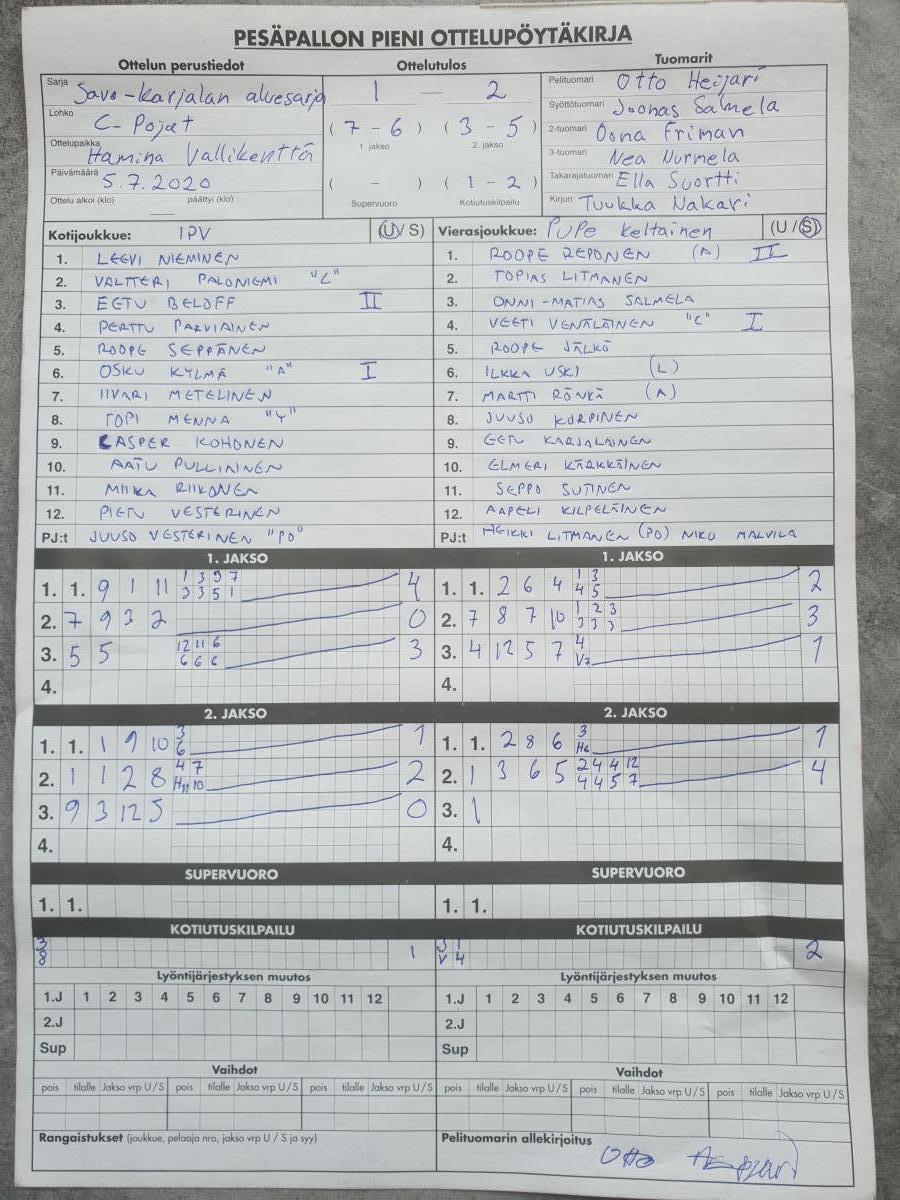 PESÄPALLON PIENI OTTELUPÖYTÄKIRJA
Ottelun perustiedot Ottelutulos Tuomarit
Sarja Savo-Karjalan aluesarja 1 — 2 Pelituomari Otto Heijari
Lohko C-Pojat (7 - 6) (3 - 5) Syöttötuomari Joonas Salmela
1. jakso 2. jakso 2-tuomari Oona Friman
Ottelupaikka Hamina Vallikenttä 3-tuomari Nea Nurmela
Päivämäärä 5.7.2020 ( - ) (1 - 2) Takarajatuomari Ella Suortti
Ottelu alkoi (klo) — päättyi (klo) Supervuoro Kotiutuskilpailu Kirjuri Tuukka Nakari
Kotijoukkue: IPV (U/S) Vierasjoukkue: PuPe Keltainen (U/S)
1. LEEVI NIEMINEN 1. ROOPE REPONEN (A) II
2. VALTTERI PALONIEMI "L" 2. TOPIAS LITMANEN
3. EETU BELOFF II 3. ONNI-MATIAS SALMELA
4. PERTTU PARVIAINEN 4. VEETI VENÄLÄINEN "C" I
5. ROOPE SEPPÄNEN 5. ROOPE JÄLKÖ
6. OSKU KYLMÄ "A" I 6. ILKKA USKI (L)
7. IIVARI METELINEN 7. MARTTI RÖNKÄ (A)
8. TOPI MENNA "Y" 8. JUUSO KORPINEN
9. CASPER KOHONEN 9. EETU KARJALAINEN
10. AATU PULLININEN 10. ELMERI KÄRKKÄINEN
11. MIIKA RIIKONEN 11. SEPPO SUTINEN
12. PIETU VESTERINEN 12. AAPELI KILPELÄINEN
PJ:t JUUSO VESTERINEN "PD" PJ:t HEIKKI LITMANEN (PD) NIKO MALVILA
1. JAKSO 1. JAKSO
1. 1. 9 1 11 1 3 9 7 4 1. 1. 2 6 4 1 3 2
3 3 5 1 4 5
2. 7 9 3 2 0 2. 7 8 7 10 1 2 3 3
3 3 3
3. 5 5 12 11 6 3 3. 4 12 5 7 4 1
6 6 6 V7
4. 4.
2. JAKSO 2. JAKSO
1. 1. 1 9 10 3 1 1. 1. 2 8 6 3 1
6 H6
2. 1 1 2 8 4 7 2 2. 1 3 6 5 2 4 4 12 4
H11 10 4 4 5 7
3. 9 3 12 5 0 3. 1
4. 4.
SUPERVUORO SUPERVUORO
1. 1. 1. 1.
KOTIUTUSKILPAILU KOTIUTUSKILPAILU
3 1 3 1 2
8 V 4
Lyöntijärjestyksen muutos Lyöntijärjestyksen muutos
1.J 1 2 3 4 5 6 7 8 9 10 11 12 1.J 1 2 3 4 5 6 7 8 9 10 11 12
2.J 2.J
Sup Sup
Vaihdot Vaihdot
pois tilalle Jakso vrp U/S pois tilalle Jakso vrp U/S pois tilalle Jakso vrp U/S pois tilalle Jakso vrp U/S pois tilalle Jakso vrp U/S pois tilalle Jakso vrp U/S
Rangaistukset (joukkue, pelaaja nro, jakso vrp U / S ja syy) Pelituomarin allekirjoitus
Otto